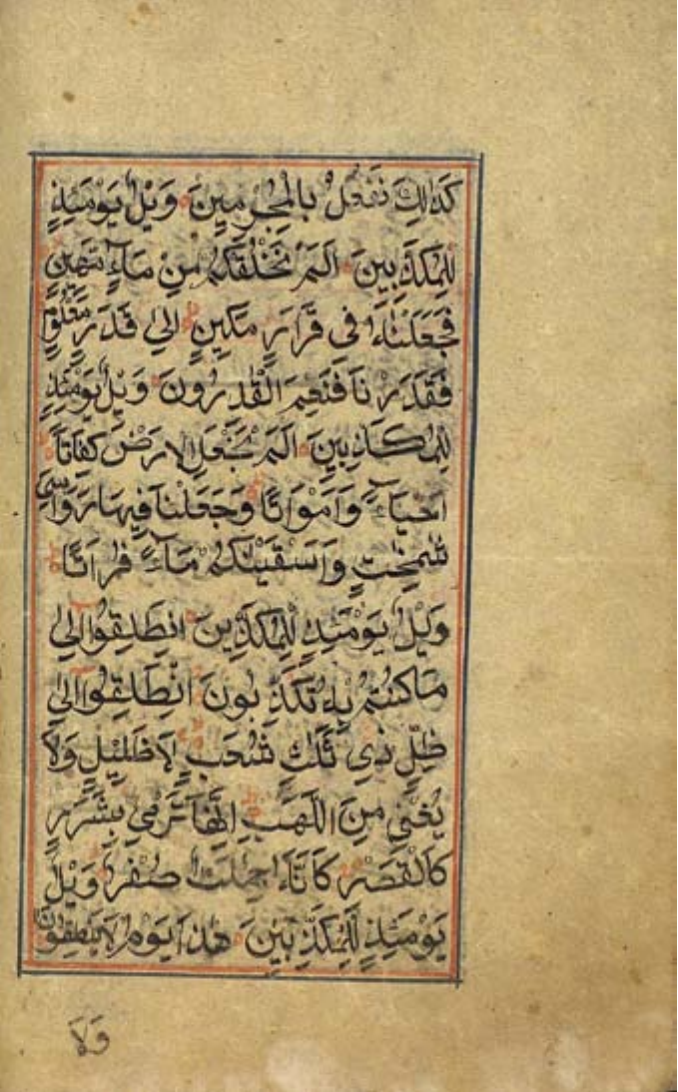 كَذَالِكَ نَفْعَلُ بِالْمُجْرِمِينَ وَيْلٌ يَوْمَئِذٍ
لِلْمُكَذِّبِينَ اَلَمْ نَخْلُقْكُمْ مِنْ مَآءٍ مَهِينٍ
فَجَعَلْنَاهُ فِى قَرَارٍ مَكِينٍ اِلىٰ قَدَرٍ مَعْلُومٍ
فَقَدَرْنَا فَنِعْمَ الْقٰدِرُونَ وَيْلٌ يَوْمَئِذٍ
لِلْمُكَذِّبِينَ اَلَمْ نَجْعَلِ الْاَرْضَ كِفَاتًا
اَحْيَآءً وَاَمْوَاتًا وَجَعَلْنَا فِيهَا رَوَاسِيَ
شٰمِخٰتٍ وَاَسْقَيْنٰكُمْ مَآءً فُرَاتًا
وَيْلٌ يَوْمَئِذٍ لِلْمُكَذِّبِينَ اِنْطَلِقُوا اِلىٰ
مَا كُنْتُمْ بِهٖ تُكَذِّبُونَ اِنْطَلِقُوا اِلىٰ
ظِلٍّ ذِي ثَلٰثِ شُعَبٍ لَا ظَلِيْلٍ وَلَا
يُغْنِي مِنَ اللَّهَبِ اِنَّهَا تَرْمِي بِشَرَرٍ
كَالْقَصْرِ كَاَنَّهُ جِمٰلَتٌ صُفْرٌ وَيْلٌ
يَوْمَئِذٍ لِلْمُكَذِّبِيْنَ هٰذَا يَوْمُ لَا يَنْطِقُوْنَ
وَلَا